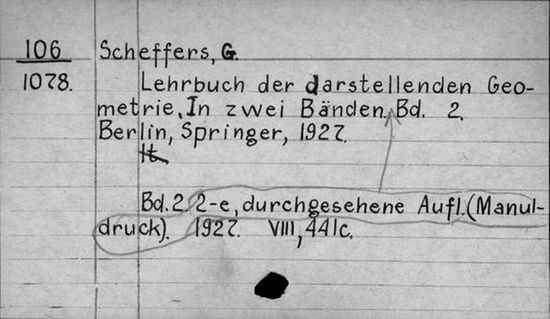 106 Scheffers, G.
1078. Lehrbuch der darstellenden Geo-
metrie. In zwei Bänden, Bd. 2.
Berlin, Springer, 1927.
It.
Bd. 2. 2-e, durchgesehene Aufl. (Manul-
druck). 1927. VIII, 441c.